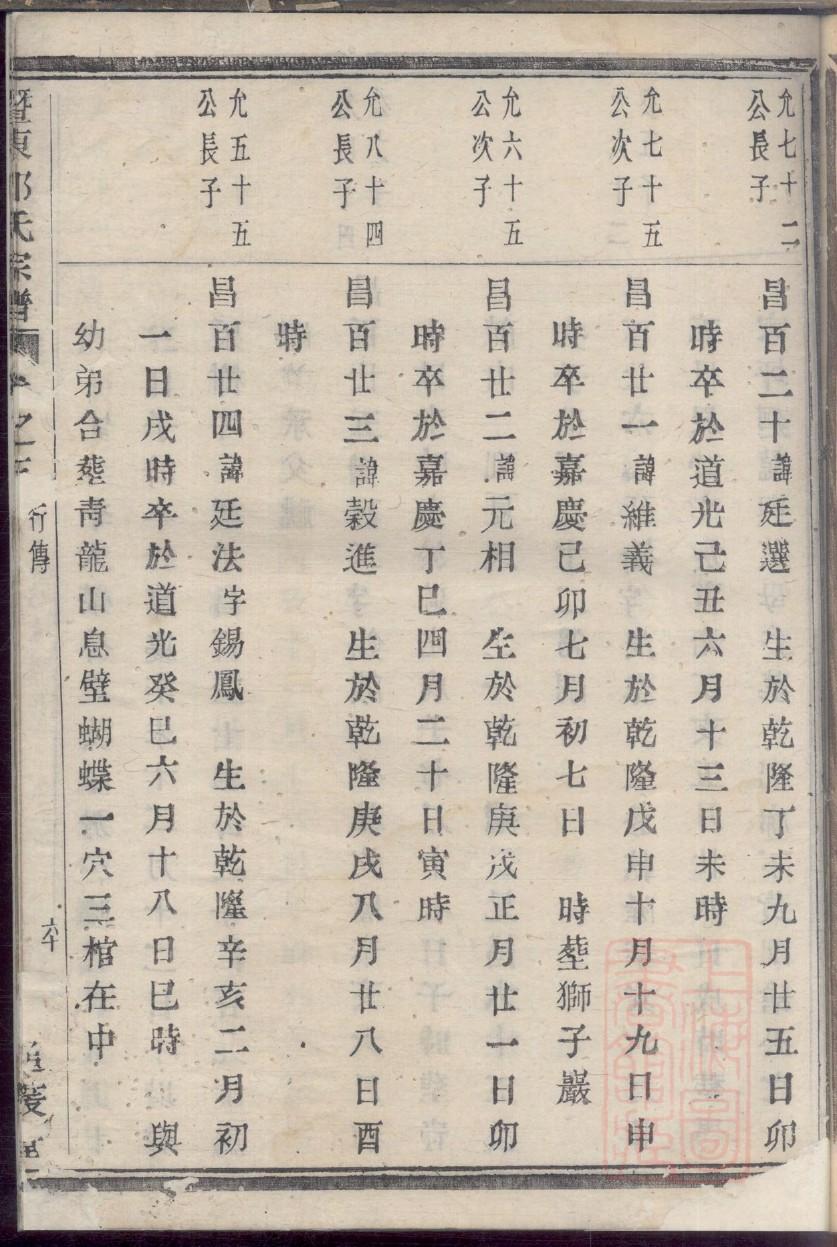 允七十二
公長子
昌百二十諱廷選 生於乾隆丁未九月廿五日卯
時卒於道光己丑六月十三日未時
允七十五
公次子
昌百廿一諱維義 生於乾隆戊申十月十九日申
時卒於嘉慶己卯七月初七日 時塟獅子巖
允六十五
公次子
昌百廿二諱元相 生於乾隆庚戌正月廿一日卯
時卒於嘉慶丁巳四月二十日寅時
允八十四
公長子
昌百廿三諱穀進 生於乾隆庚戌八月廿八日酉
時
允五十五
公長子
昌百廿四諱廷法字錫鳳 生於乾隆辛亥二月初
一日戌時卒於道光癸巳六月十八日巳時 與
幼弟合塟靑龍山息壁蝴蝶一穴三棺在中
氏宗譜 之 行傳 六十